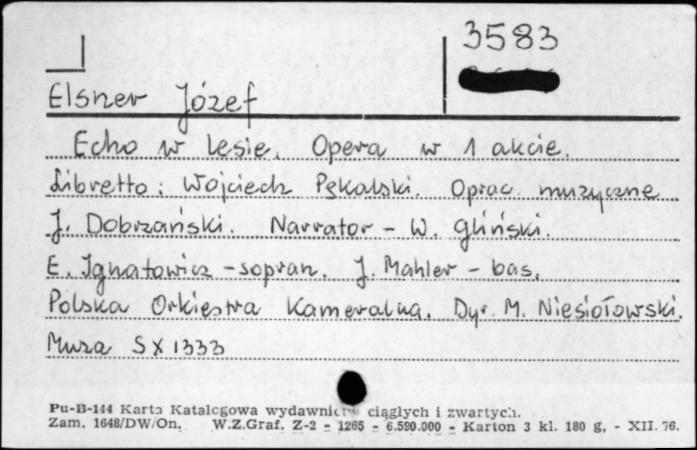 3583
Elsner Józef
Echo w lesie. Opera w 1 akcie.
Libretto: Wojciech Pękalski. Oprac. muzyczne
J. Dobrzański. Narrator - W. Gliński.
E. Ignatowicz - sopran. J. Mahler - bas.
Polska Orkiestra Kameralna. Dyr. M. Niesiołowski.
Muza SX 1333
Pu-B-144 Karta Katalogowa wydawnictw ciągłych i zwartych.
Zam. 1648/DW/On. W.Z.Graf. Z-2 - 1265 - 6.590.000 - Karton 3 kl. 180 g, - XII. 76.